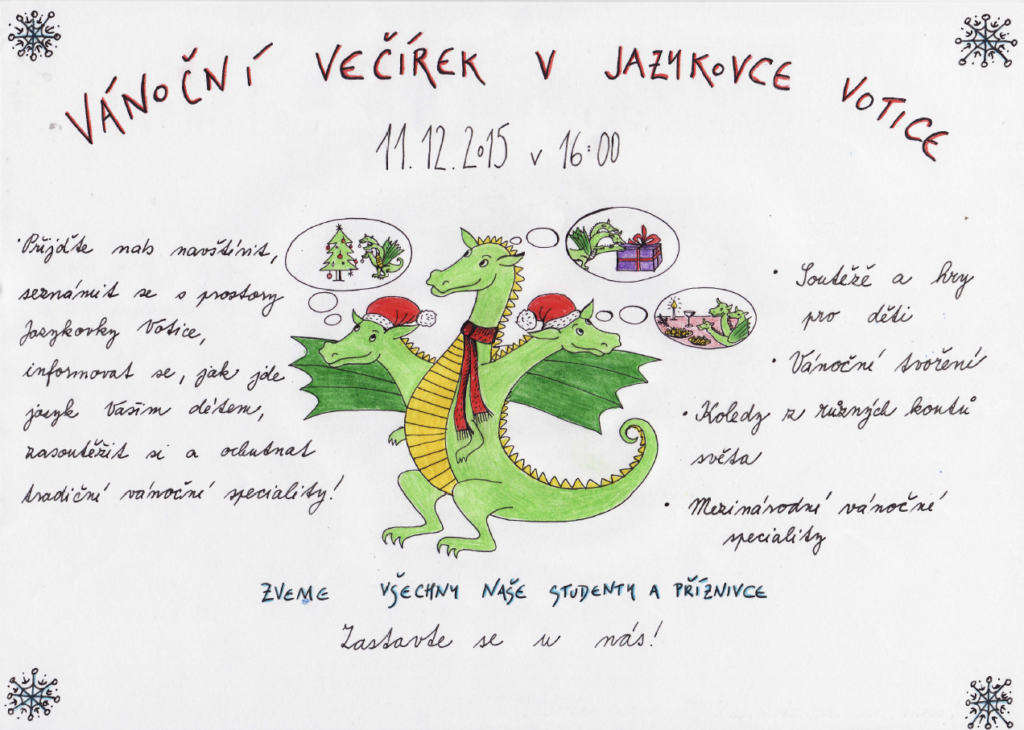 VÁNOČNÍ VEČÍREK V JAZYKOVCE VOTICE
11.12.2015 v 16:00
Přijďte nás navštívit,
seznámit se s prostory
Jazykovky Votice,
informovat se, jak jde
jazyk Vašim dětem,
zasoutěžit si a ochutnat
tradiční vánoční speciality!
• Soutěže a hry
pro děti
• Vánoční tvoření
• Koledy z různých koutů
světa
• Mezinárodní vánoční
speciality
ZVEME VŠECHNY NAŠE STUDENTY A PŘÍZNIVCE
Zastavte se u nás!